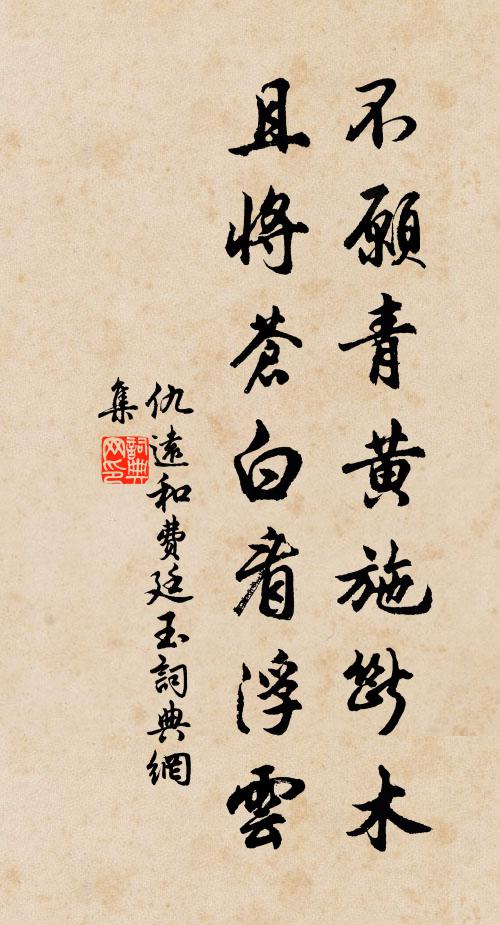 不願青黃施斷木
且將蒼白看浮雲
仇遠和費廷玉詞典網
集
詞典
网印